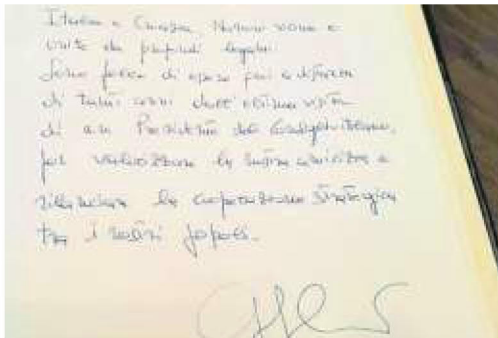 Italia e Croazia, Nazioni vicine e
unite da profondi legami.
Sono felice di essere qui a distanza
di tanti anni dall'ultima visita
di un Presidente del Consiglio italiano,
per valorizzare la nostra amicizia e
rilanciare la cooperazione strategica
tra i nostri popoli.